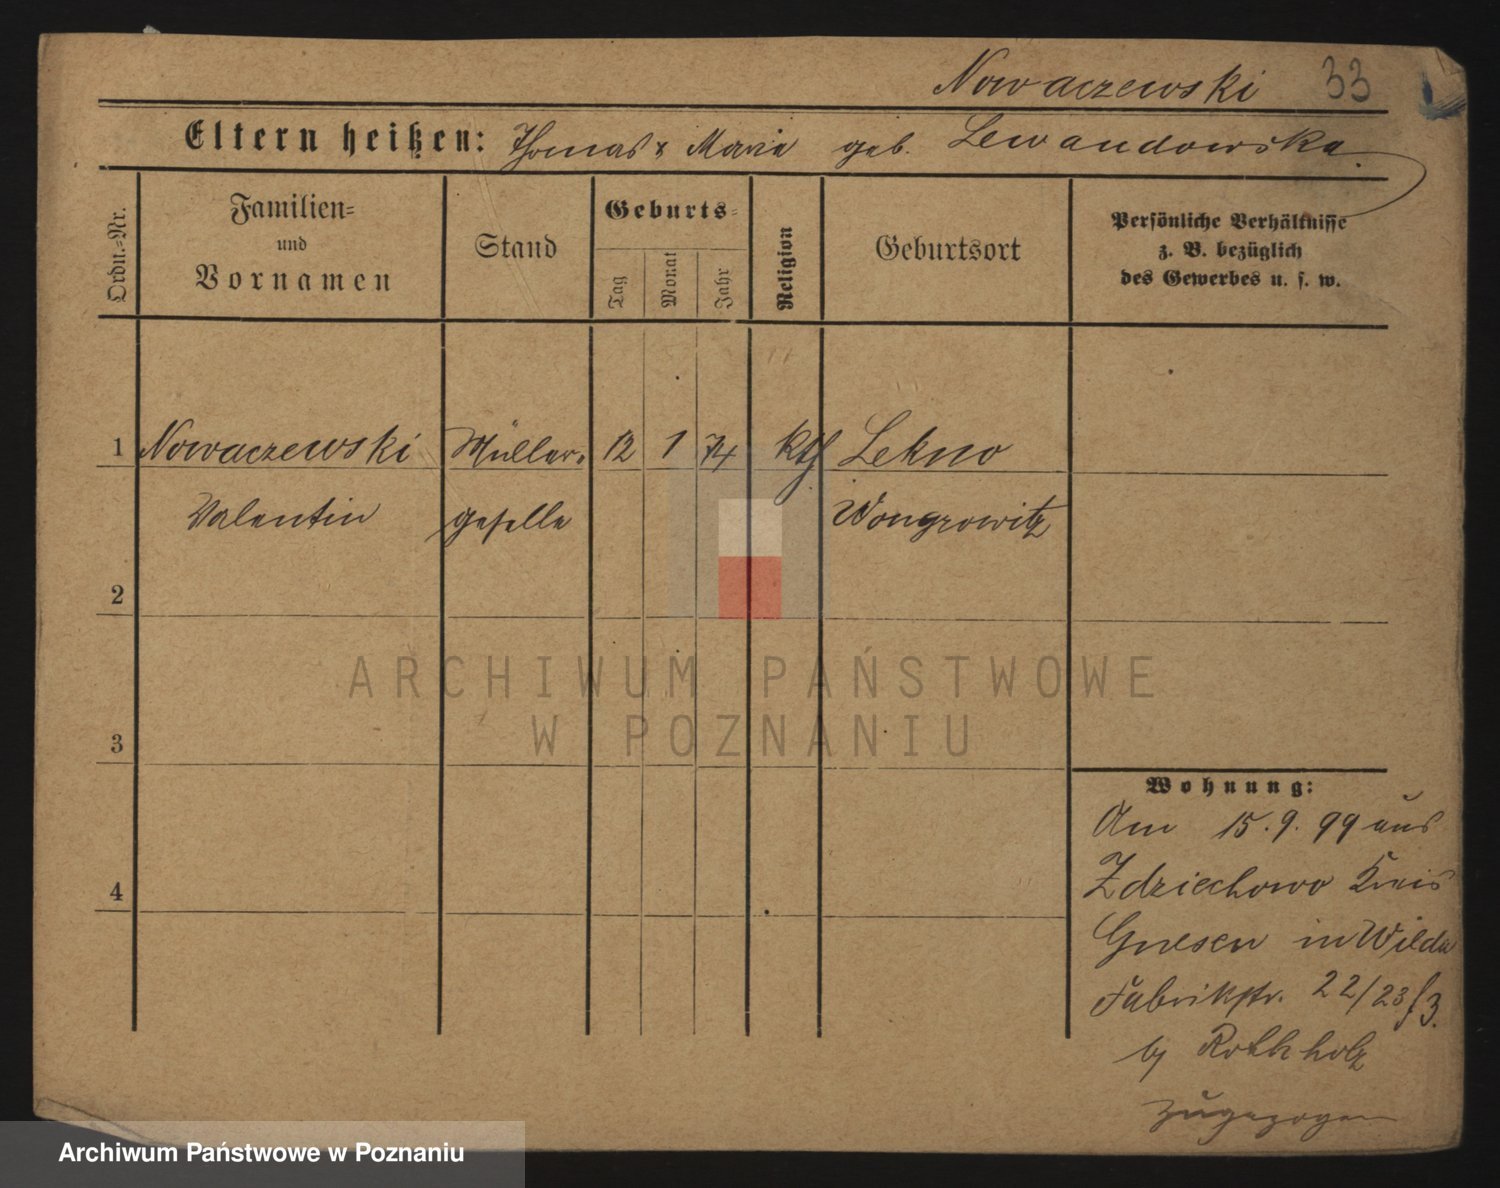 Nowaczewski 33
Eltern heißen: Thomas & Marie geb. Lewandowska.
Ordn.-Nr.
Familien-
und
Vornamen
Stand
Geburts-
Tag
Monat
Jahr
Religion
Geburtsort
Persönliche Verhältnisse
z. B. bezüglich
des Gewerbes u. s. w.
1 Nowaczewski Müller- 12 1 74 kth Lekno
Valentin geselle Wongrowitz
2
3
4
Wohnung:
Am 15.9.99 aus
Zdziechowo Kreis
Gnesen in Wilda
Fabrikstr. 22/23
by Rothholz
zugezogen
ARCHIWUM PAŃSTWOWE
W POZNANIU
Archiwum Państwowe w Poznaniu